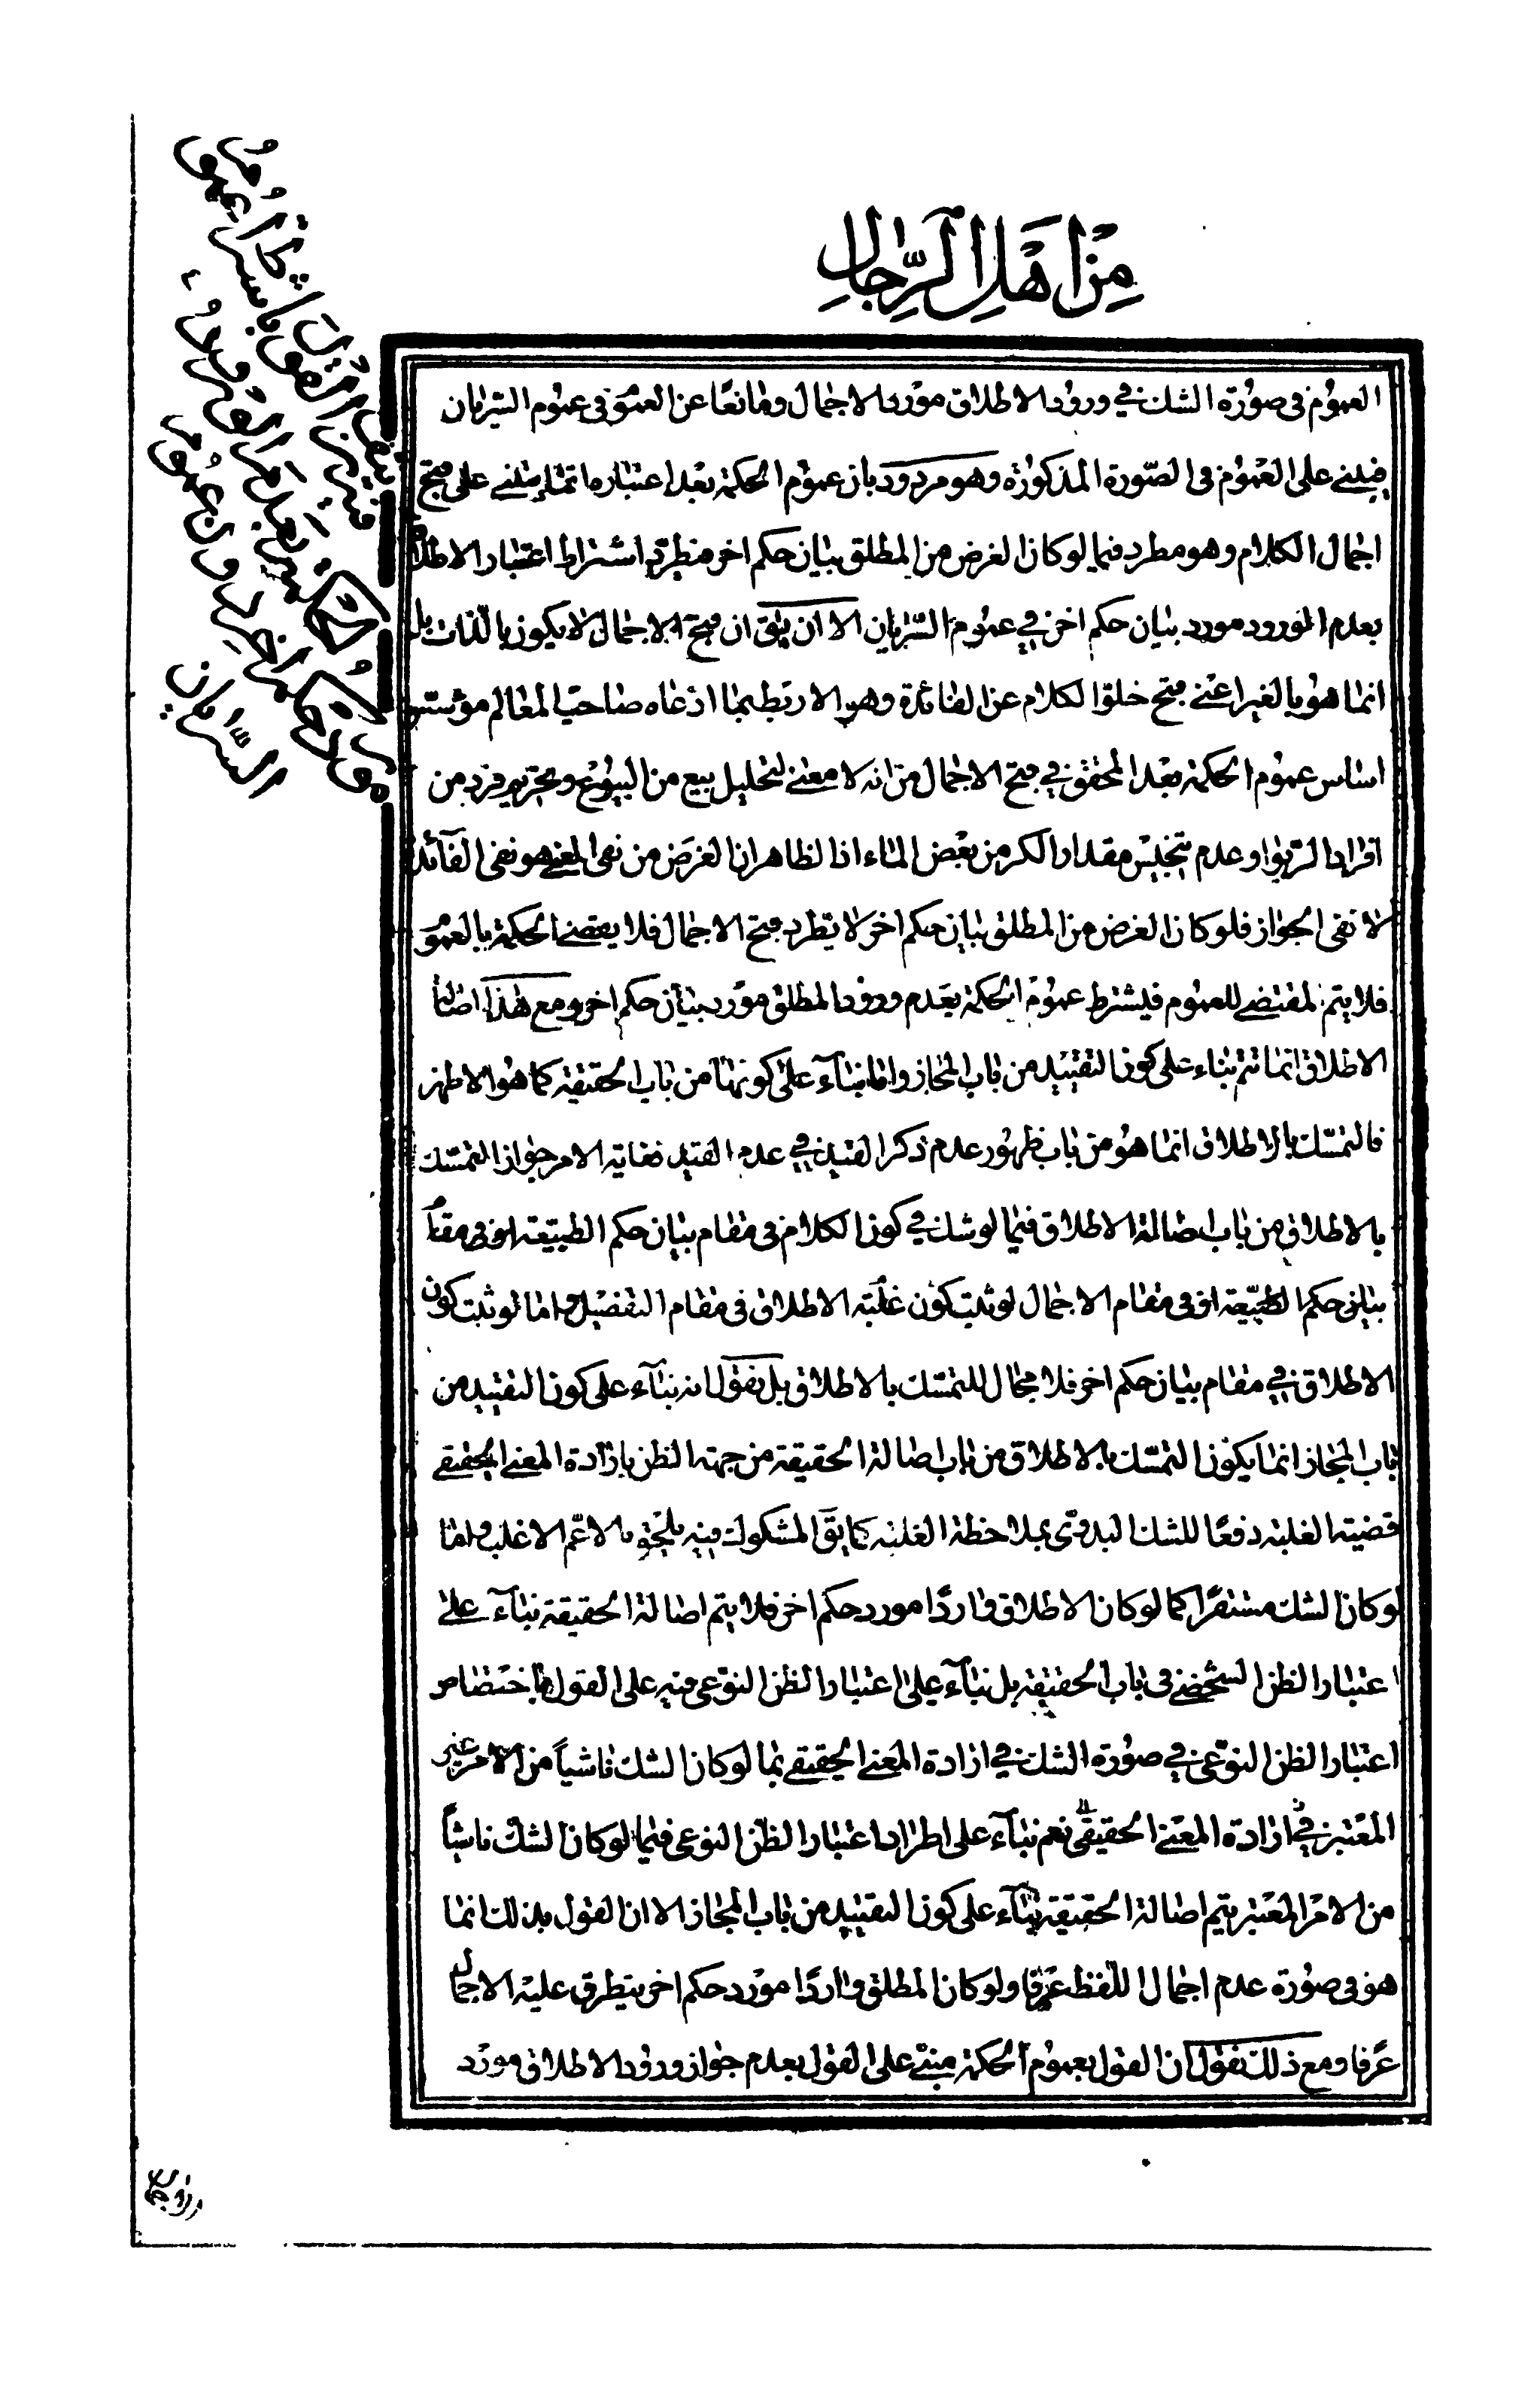 مِنْ اَهْلِ الرِّجَالِ
العموم فى صورة الشك في ورود الاطلاق مورد الاجمال ومانعا عن العموم فى عموم السريان
فيبنى على العموم فى الصورة المذكورة وهو مردود بان عموم الحكمة بعد اعتباره انما يبتنى على قبح
اجمال الكلام وهو مطرد فيما لو كان الغرض من المطلق بيان حكم اخر فيطرد اشتراط اعتبار الاطلاق
بعدم الورود مورد بيان حكم اخر في عموم السريان الا ان يق ان قبح الاجمال لا يكون بالذات بل
انما هو بالغير اعنى قبح خلو الكلام عن الفائدة وهو الا ربط بما ادعاه صاحب المعالم مؤسس
اساس عموم الحكمة بعد المحقق في قبح الاجمال من انه لا معنى لتحليل بيع من البيوع وتحريم فرد من
افراد الربوا وعدم تنجيس مقدار الكر من بعض الماء اذ الظاهر ان الغرض من نفى المعنى هو نفى الفائدة
لا نفى الجواز فلو كان الغرض من المطلق بيان حكم اخر لا يطرد قبح الاجمال فلا يقضى الحكمة بالعموم
فلا يتم المقتضى للعموم فيشترط عموم الحكمة بعدم ورود المطلق مورد بيان حكم اخر ومع هذا اصالة
الاطلاق انما تتم بناء على كون التقييد من باب المجاز واما بناء على كونها من باب الحقيقة كما هو الاظهر
فالتمسك بالاطلاق انما هو من باب ظهور عدم ذكر القيد في عدم القيد فغاية الامر جواز التمسك
بالاطلاق من باب اصالة الاطلاق فيما لو شك في كون الكلام فى مقام بيان حكم الطبيعة او فى مقام
بيان حكم الطبيعة او فى مقام الاجمال لو ثبت كون غلبة الاطلاق فى مقام التفصيل واما لو ثبت كون
الاطلاق في مقام بيان حكم اخر فلا مجال للتمسك بالاطلاق بل نقول انه بناء على كون التقييد من
باب المجاز انما يكون التمسك بالاطلاق من باب اصالة الحقيقة من جهة الظن بارادة المعنى الحقيقى
قضية الغلبة دفعا للشك البدوى بملاحظة الغلبة كما يق المشكوك فيه يلحق بالاعم الاغلب واما
لو كان الشك مستقرا كما لو كان الاطلاق واردا مورد حكم اخر فلا يتم اصالة الحقيقة بناء على
اعتبار الظن الشخصى فى باب الحقيقة بل بناء على اعتبار الظن النوعى فيه على القول باختصاص
اعتبار الظن النوعى في صورة الشك في ارادة المعنى الحقيقى بما لو كان الشك ناشيا من الامر غير
المعتبر في ارادة المعنى الحقيقى نعم بناء على اطراد اعتبار الظن النوعى فيما لو كان الشك ناشيا
من الامر المعتبر يتم اصالة الحقيقة بناء على كون التقييد من باب المجاز الا ان القول بذلك انما
هو فى صورة عدم اجمال اللفظ عرفا ولو كان المطلق واردا مورد حكم اخر يتطرق عليه الاجمال
عرفا ومع ذلك نقول ان القول بعموم الحكمة مبنى على القول بعدم جواز ورود الاطلاق مورد